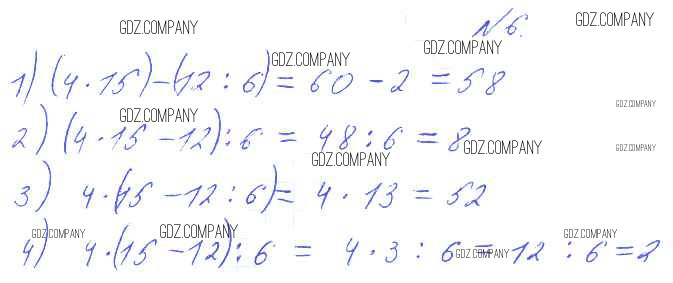 GDZ.COMPANY GDZ.COMPANY
№ 6.
GDZ.COMPANY GDZ.COMPANY
1) (4 · 15) - (12 : 6) = 60 - 2 = 58
GDZ.COMPANY GDZ.COMPANY
2) (4 · 15 - 12) : 6 = 48 : 6 = 8
GDZ.COMPANY GDZ.COMPANY
GDZ.COMPANY
3) 4 · (15 - 12 : 6) = 4 · 13 = 52
GDZ.COMPANY GDZ.COMPANY GDZ.COMPANY
4) 4 · (15 - 12) : 6 = 4 · 3 : 6 = 12 : 6 = 2
GDZ.COMPANY